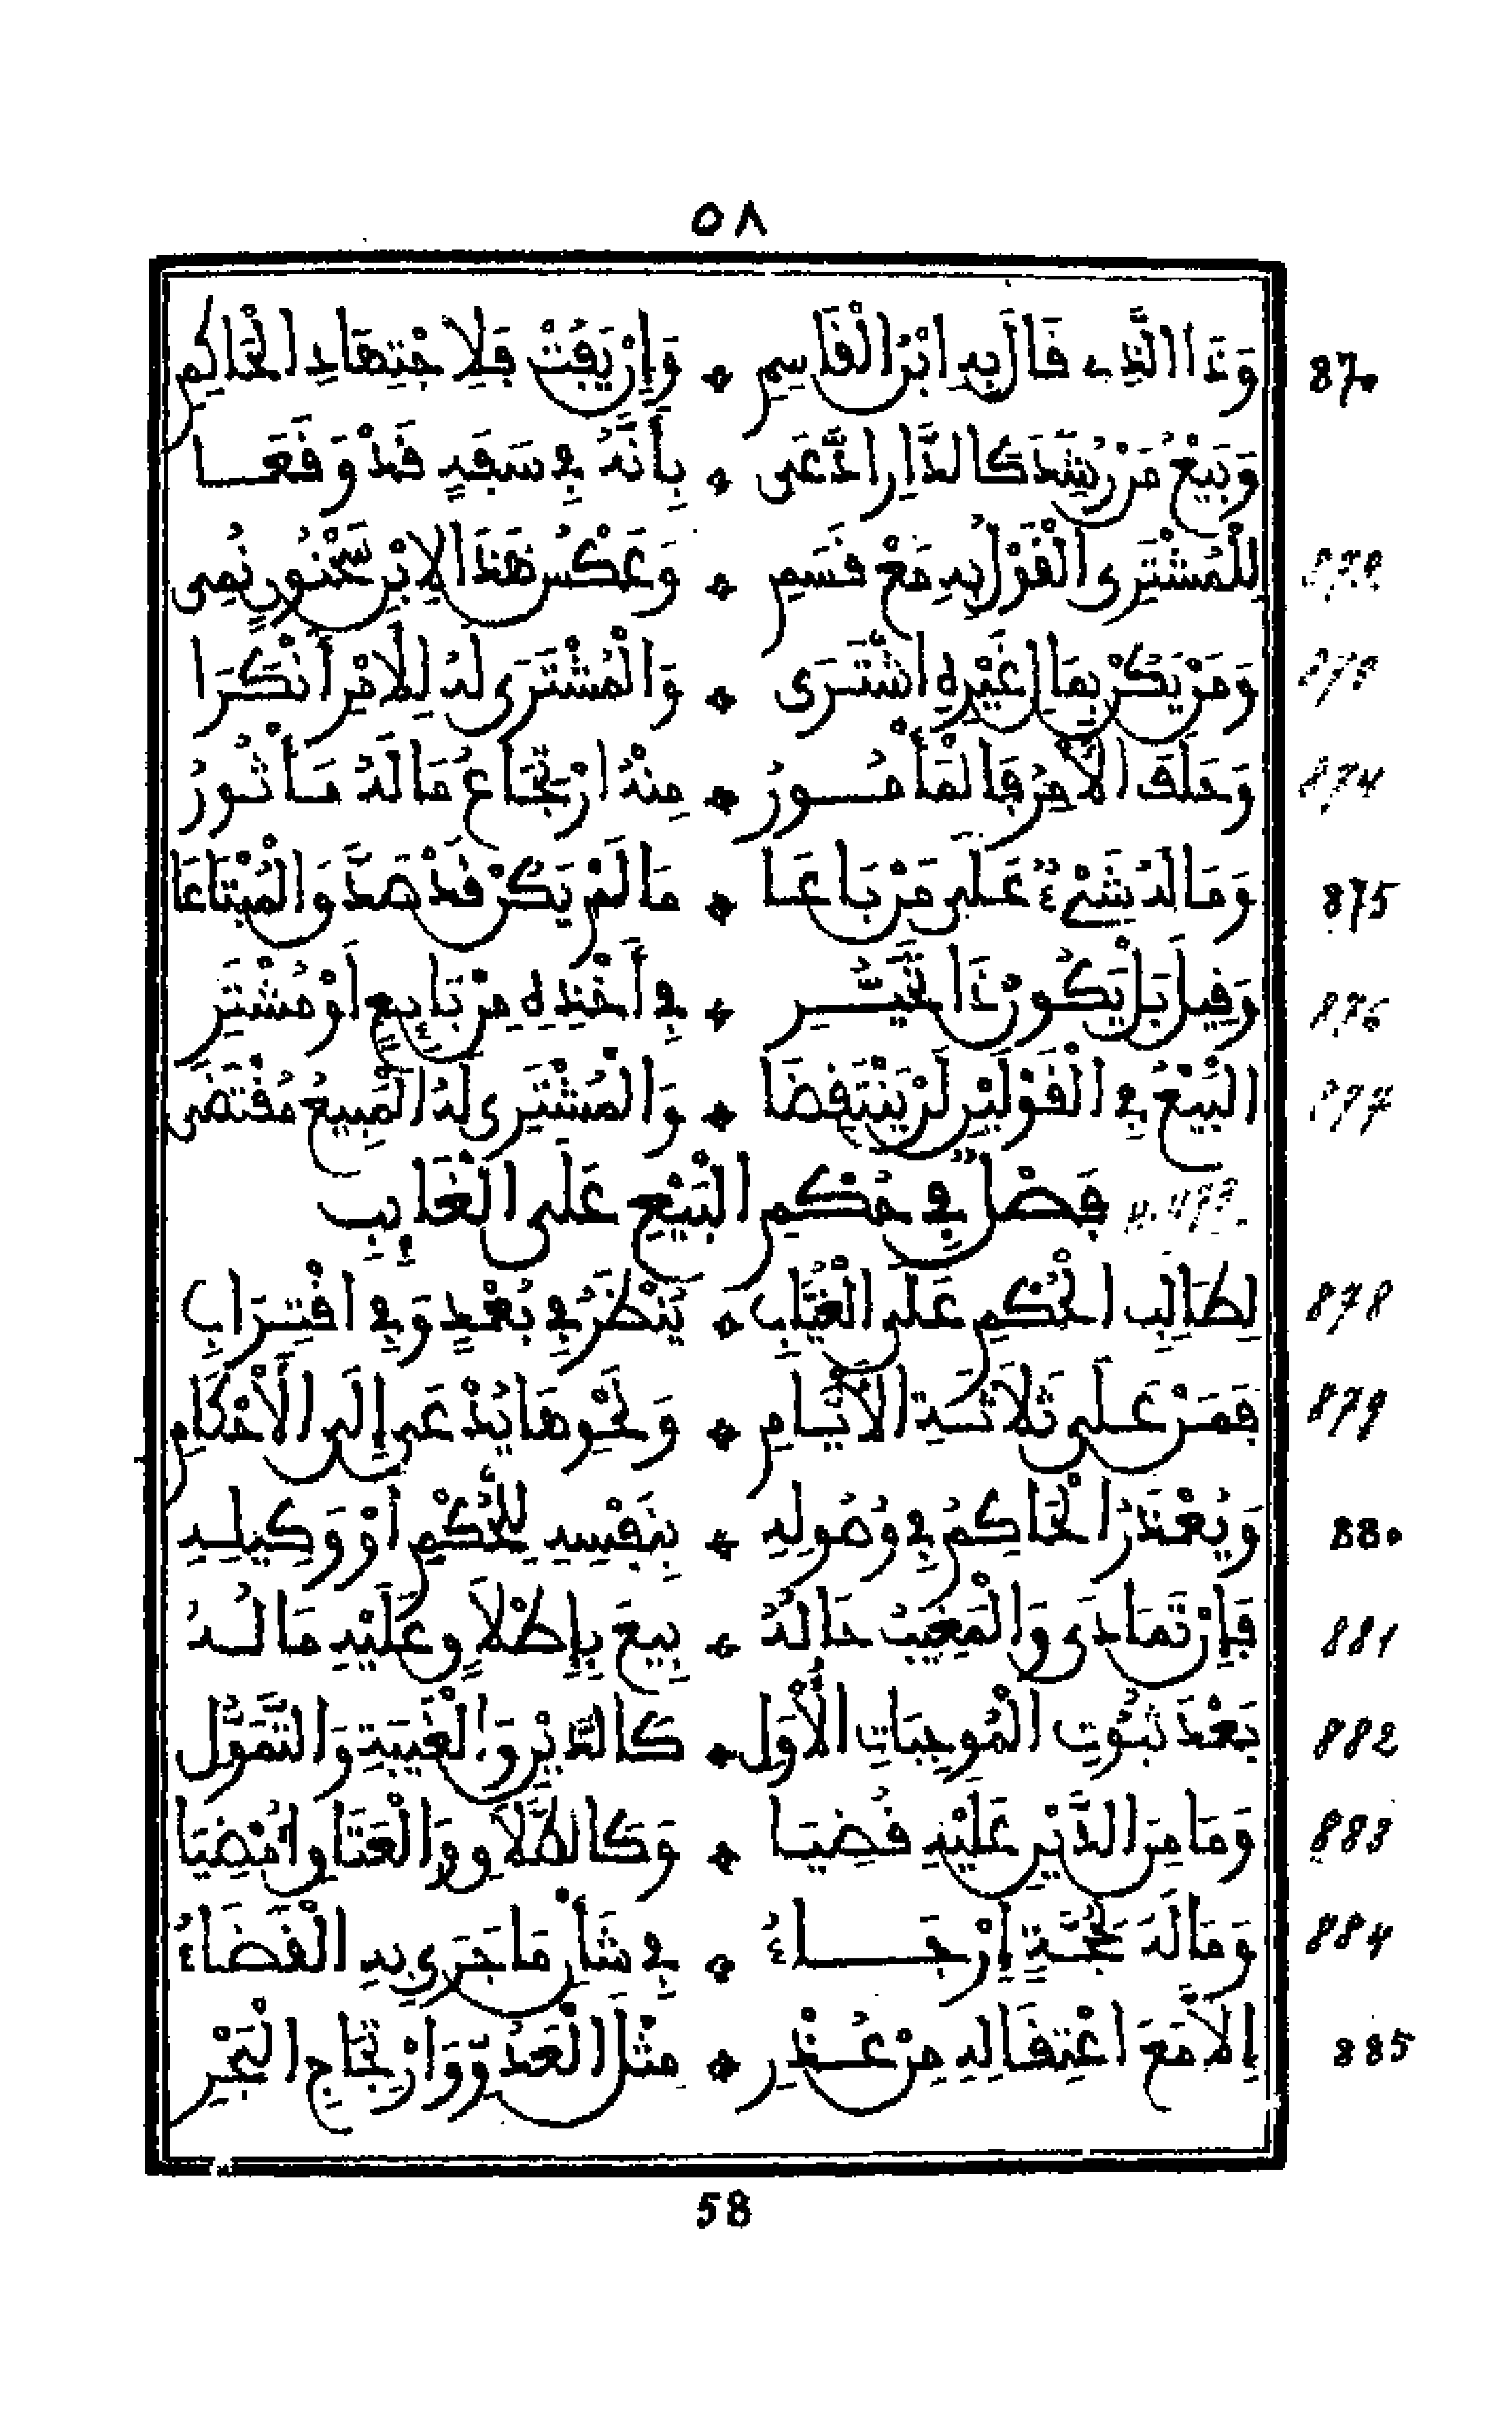 ٥٨
وَذَا الَّذِي قَالَ بِهِ ابْنُ الْقَاسِمِ ۞ وَإِنْ يَفُتْ فَلِاجْتِهَادِ الْحَاكِمِ 870
وَبَيْعُ مَنْ رُشِّدَ كَالدَّارِ ادَّعَى ۞ بِأَنَّهُ فِي سَفَهٍ قَدْ وَقَعَا
لِلْمُشْتَرِي الْقَوْلُ بِهِ مَعْ قَسَمِ ۞ وَعَكْسُ هَذَا لِابْنِ سَحْنُونٍ نُمِي 872
وَمَنْ يَكُنْ بِمَالِ غَيْرِهِ اشْتَرَى ۞ وَالْمُشْتَرِي لَهُ لِلْأَمْرِ أَنْكَرَا 873
وَحَلَفَ الْآمِرُ فَالْمَأْمُورُ ۞ مِنْهُ ارْتِجَاعُ مَالِهِ مَأْثُورُ 874
وَمَا لَهُ شَيْءٌ عَلَى مَنْ بَاعَا ۞ مَا لَمْ يَكُنْ قَدْ صَدَّقَ الْمُبْتَاعَا 875
وَقِيلَ بَلْ يَكُونُ ذَا تَخَيُّرِ ۞ فِي أَخْذِهِ مِنْ بَايِعٍ أَوْ مُشْتَرِ 876
الْبَيْعُ فِي الْقَوْلَيْنِ لَنْ يَنْتَقِضَا ۞ وَالْمُشْتَرِي لَهُ الْمَبِيعُ مُقْتَضَى 877
فَصْلٌ فِي حُكْمِ الْبَيْعِ عَلَى الْغَايِبِ
لِطَالِبِ الْحُكْمِ عَلَى الْغُيَّابِ ۞ يُنْظَرُ فِي بُعْدٍ وَفِي اقْتِرَابِ 878
فَمَنْ عَلَى ثَلَاثَةِ الْأَيَّامِ ۞ وَنَحْوِهَا يُدْعَى إِلَى الْأَحْكَامِ 879
وَيُعْذِرُ الْحَاكِمُ فِي وُصُولِهِ ۞ بِنَفْسِهِ لِلْحُكْمِ أَوْ وَكِيلِهِ 880
فَإِنْ تَمَادَى وَالْمَغِيبُ حَالُهُ ۞ بِيعَ بِإِطْلَاقٍ عَلَيْهِ مَالُهُ 881
بَعْدَ ثُبُوتِ الْمُوجِبَاتِ الْأُوَلِ ۞ كَالدَّيْنِ وَالْغَيْبَةِ وَالتَّمَوُّلِ 882
وَمَا مِنَ الدَّيْنِ عَلَيْهِ قُضِيَا ۞ وَكَالطَّلَاقِ وَالْعَتَاقِ أُمْضِيَا 883
وَمَا لَهُ لِحُجَّةٍ إِرْجَاءُ ۞ فِي شَأْنِ مَا جَرَى بِهِ الْقَضَاءُ 884
إِلَّا مَعَ اعْتِقَالِهِ مِنْ عُذْرِ ۞ مِثْلِ الْعَدُوِّ وَارْتِجَاجِ الْبَحْرِ 885
58